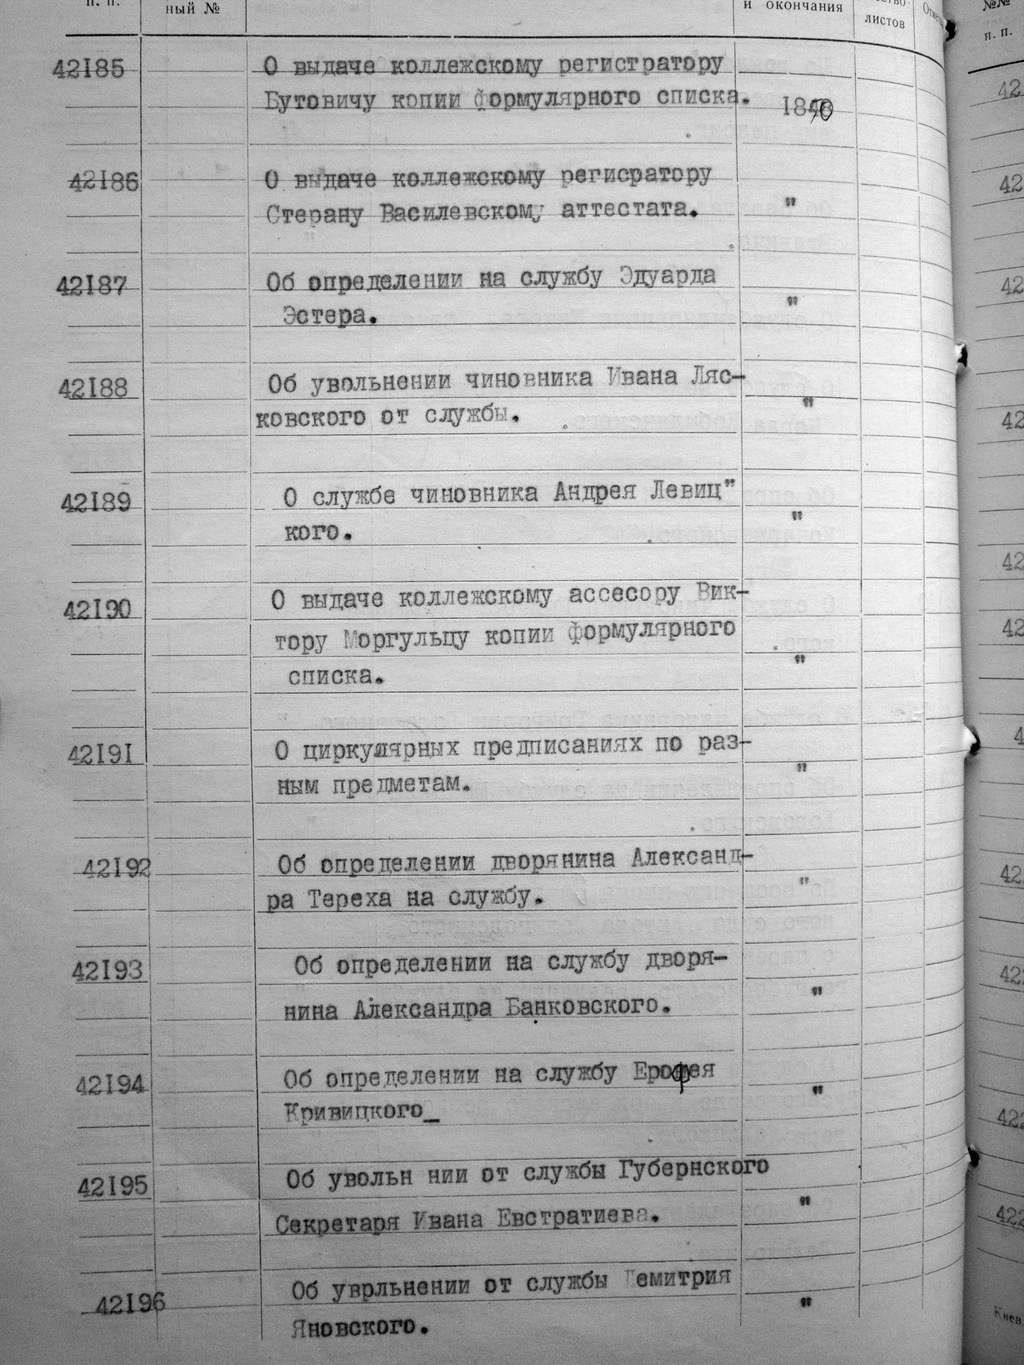 п. п.
ный №
и окончания
листов
№№
п. п.
42I85
О выдаче коллежскому регистратору
Бутовичу копии формулярного списка.
42I86
О выдаче коллежскому регисратору
Стерану Василевскому аттестата. "
42I87
Об определении на службу Эдуарда
Эстера. "
42I88
Об увольнении чиновника Ивана Ляс-
ковского от службы. "
42I89
О службе чиновника Андрея Левиц"
кого. "
42I90
О выдаче коллежскому ассесору Вик-
тору Моргульцу копии формулярного
списка. "
42I91
О циркулярных предписаниях по раз-
ным предметам. "
42I92
Об определении дворянина Александ-
ра Тереха на службу. "
42I93
Об определении на службу дворя-
нина Александра Банковского. "
42I94
Об определении на службу Ерофея
Кривицкого_ "
42I95
Об увольн нии от службы Губернского
Секретаря Ивана Евстратиева. "
42I96
Об уврльнении от службы Демитрия
Яновского. "